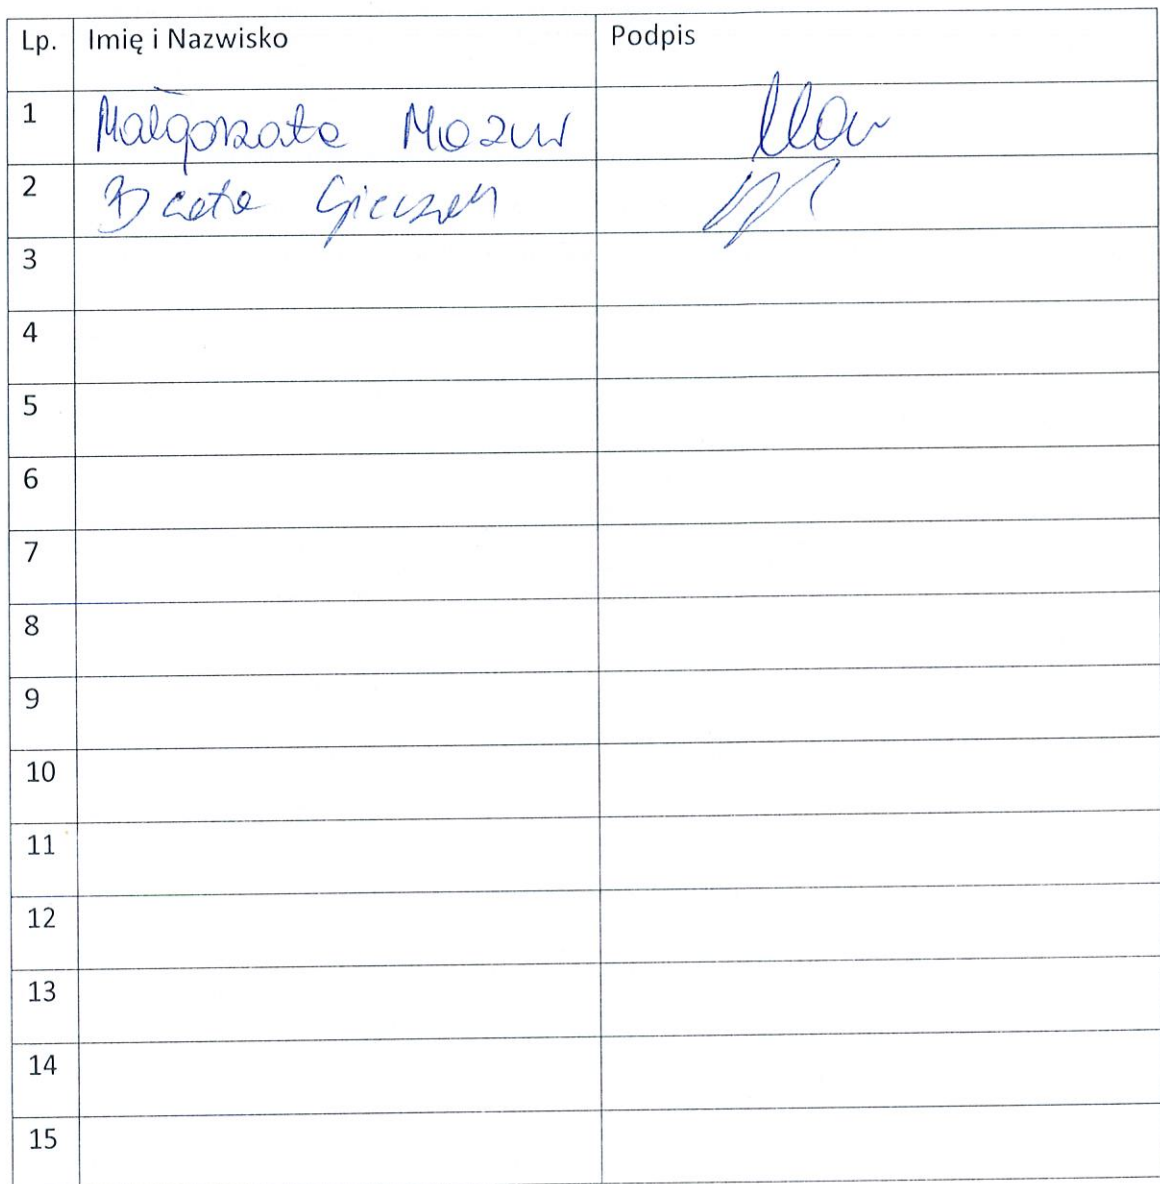 Lp. Imię i Nazwisko Podpis
1 Małgorzata Mazur
2 Beata
3
4
5
6
7
8
9
10
11
12
13
14
15